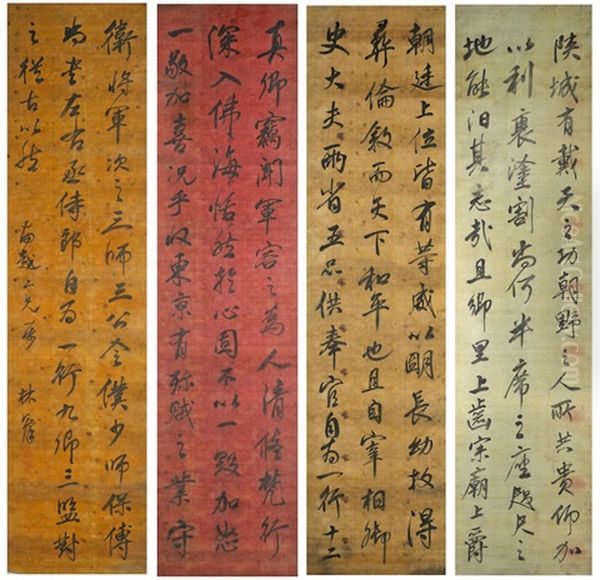 陝城有戴天之功朝野之人所共貴仰加
以利衰塗割為何半席之座咫尺之
地能汩其志哉且鄉里上齒宗廟上爵
朝廷上位皆有等威以明長幼故得
彝倫敘而天下和平也且自宰相御
史大夫兩省五品供奉官自為一行十二
真卿竊聞軍容之為人清修梵行
深入佛海恬然於心固不以一毀加怒
一敬加喜況乎收東京有殄賊之業守
衛將軍次之三師三公令僕少師保傅
尚書左右丞侍郎自為一行九卿三監對
之從古以然
二兄屬
林